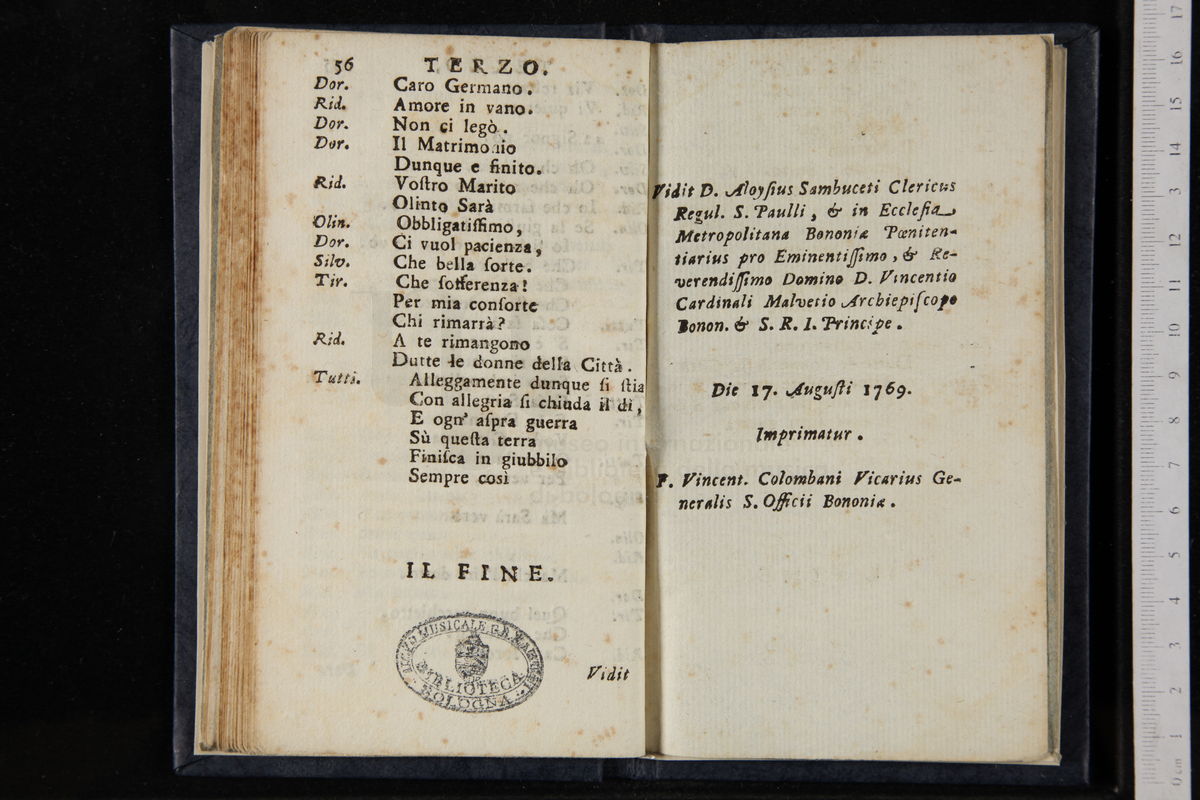 56 TERZO.
Dor. Caro Germano.
Rid. Amore in vano.
Dor. Non ci legò.
Dor. Il Matrimonio
Dunque e finito.
Rid. Voſtro Marito
Olinto Sarà
Olin. Obbligatiſſimo,
Dor. Ci vuol pacienza,
Silv. Che bella ſorte.
Tir. Che ſofferenza!
Per mia conſorte
Chi rimarrà?
Rid. A te rimangono
Dutte le donne della Città.
Tutti. Alleggamente dunque ſi ſtia
Con allegria ſi chiuda il di,
E ogn' aſpra guerra
Sù queſta terra
Finiſca in giubbilo
Sempre così
IL FINE.
BIBLIOTECA
BOLOGNA
Vidit
Vidit D. Aloyſius Sambuceti Clericus
Regul. S. Paulli, & in Eccleſia
Metropolitana Bononiæ Pœniten-
tiarius pro Eminentiſſimo, & Re-
verendiſſimo Domino D. Vincentio
Cardinali Malvetio Archiepiſcopo
Bonon. & S. R. I. Principe.
Die 17. Auguſti 1769.
Imprimatur.
F. Vincent. Colombani Vicarius Ge-
neralis S. Officii Bononiæ.
17
16
15
14
13
12
11
10
9
8
7
6
5
4
3
2
1
0 cm